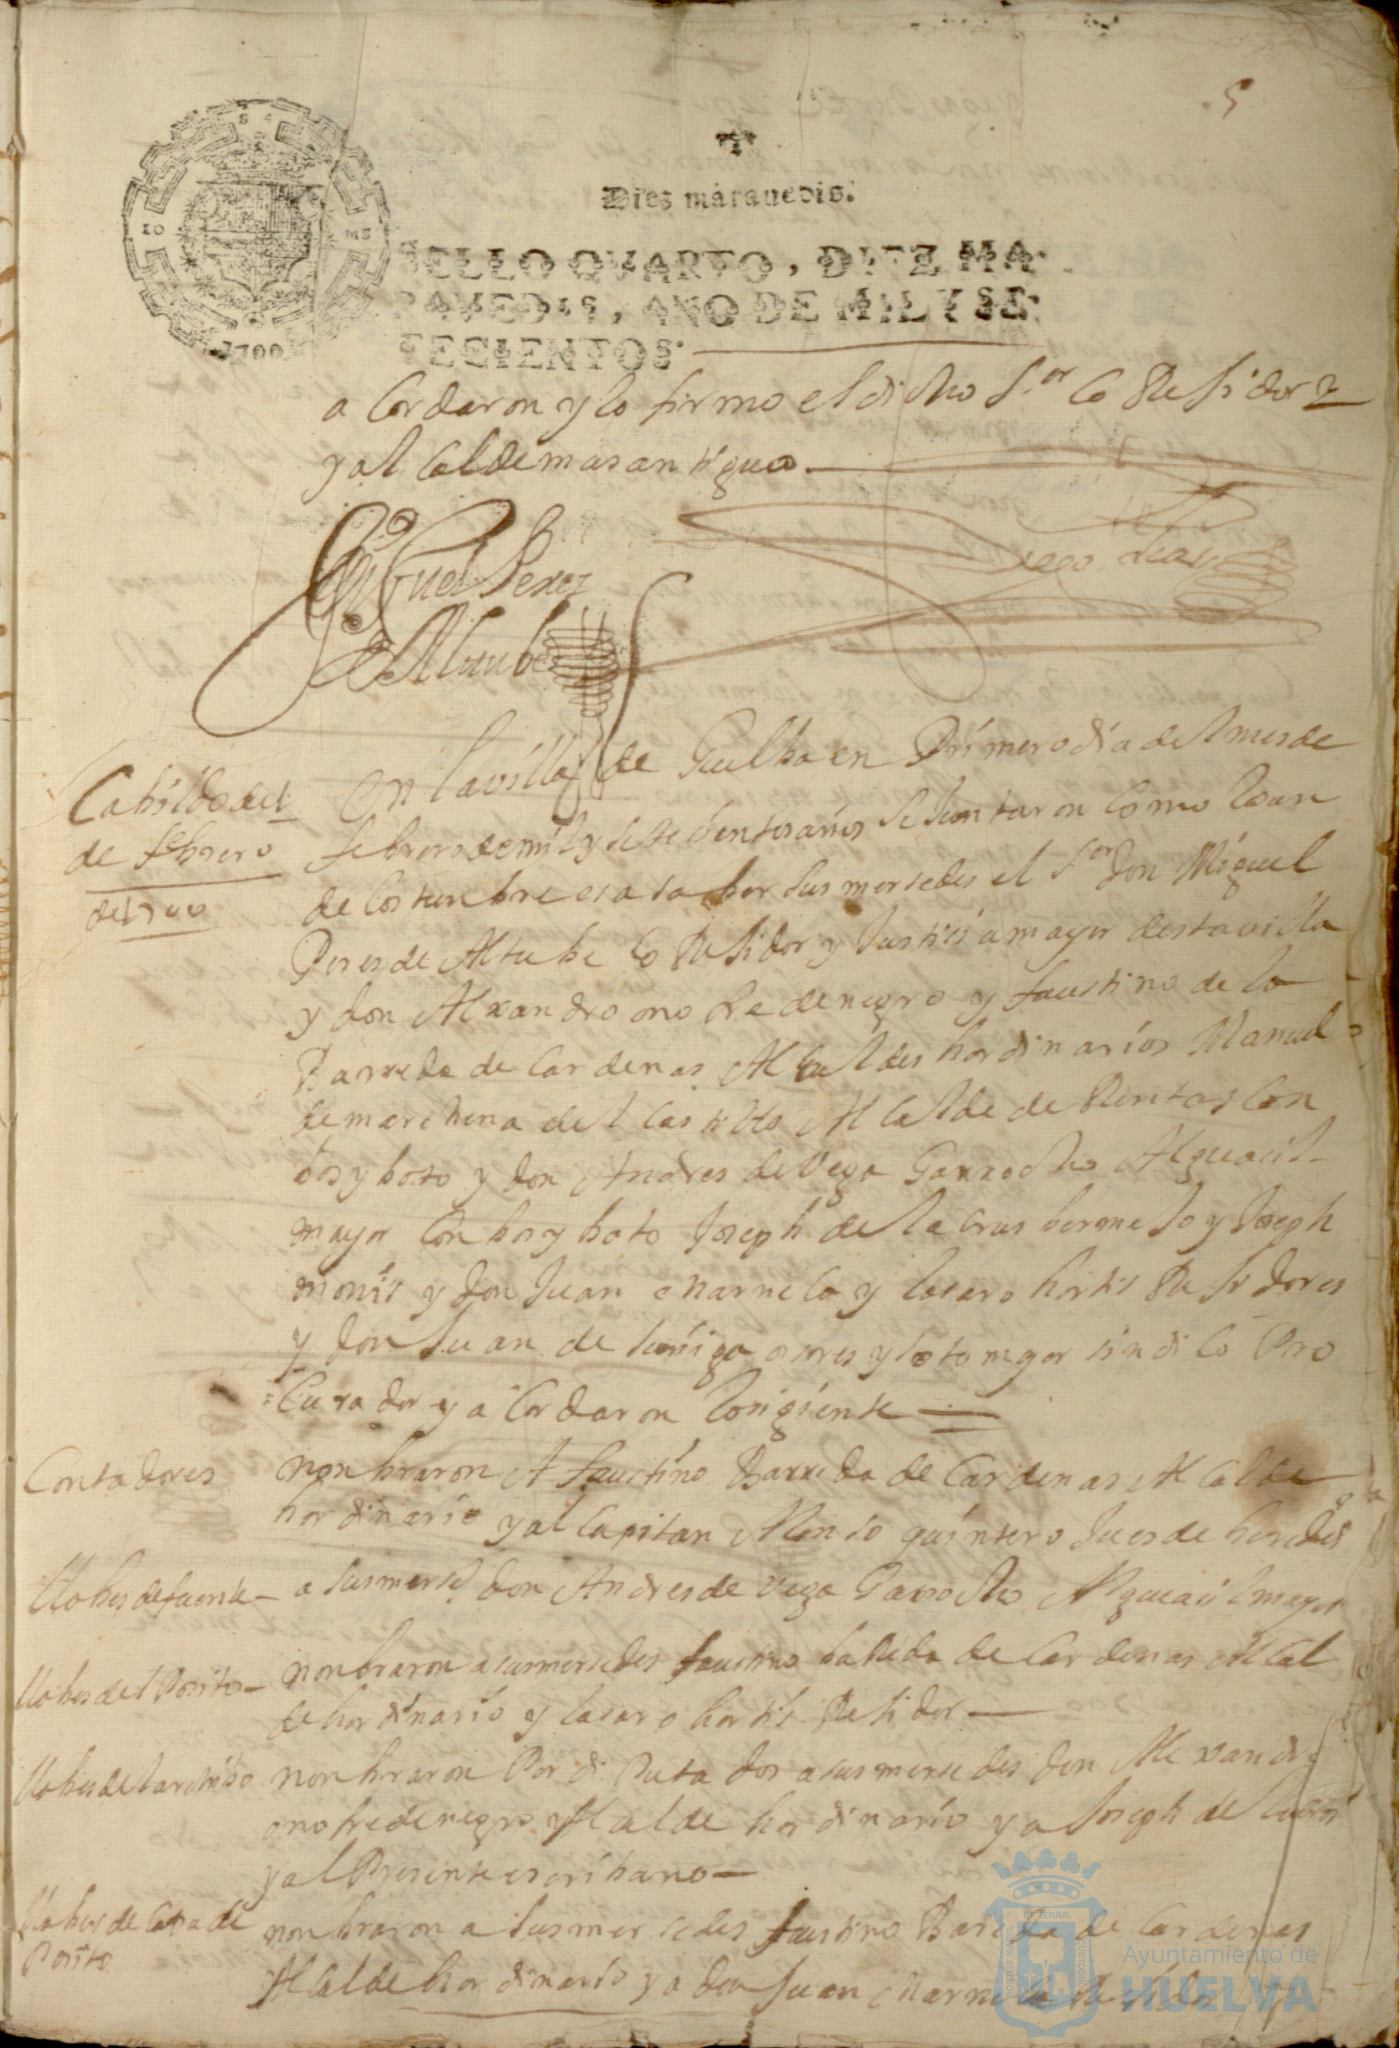 5
Dies marauedis.
SELLO QVARTO, DIEZ MA-
RAVEDIS, AÑO DE MIL Y SE-
TECIENTOS.
1700
a Cordaron y lo firmo el dicho S.or CoRexidor
y al Calde mas antiguo
Miguel Perez
de Altube
Diego
Cabildo del
de febrero
del 700
en la villa de Guelba en Primero dia del mes de
febrero de mil y setesientos años se Juntaron Como lo an
de Costumbre es a saber sus mersedes el Sor Don Miguel
Peres de Altube CoRexidor y Justisia mayor desta villa
y Don Alxandro onofre de negro y faustino de la
Barreda de Cardenas Alcaldes hordinarios Manuel
de marchena del Castillo Alcalde de Rentas Con
bos y boto y Don Andres de Vega Garrocho Alguacil
mayor Con bos y boto Joseph de la Crus bermejo y Joseph
monis y Don Juan Marnelo y lasaro hortis Rexidores
y Don Juan de Suñiga y Soto mayor sindico Pro
Curador y a Cordaron lo sigiente
Contadores
nonbraron A faustino Barreda de Cardenas Alcalde
hordinario y al Capitan Alonso quintero Jues de
Llabes de fuente
a su mersed Don Andres de Vega Garrocho Alguacil mayor
Llabes del Posito
nonbraron a sus mersedes faustino baReda de Cardenas Alcal
de hordinario y lasaro hortis Rexidor
Llabes del archibo
nonbraron Por di Puta dos a sus mersedes don Alexandro
onofre de negro Alcalde hordinario y a Joseph de la Crus
y al Presente escribano
Llabes de Casa de
Posito
nonbraron a sus mersedes faustino Bareda de Cardenas
Alcalde hordinario y a Don Juan Marnelo Rexidor
Ayuntamiento de
HUELVA